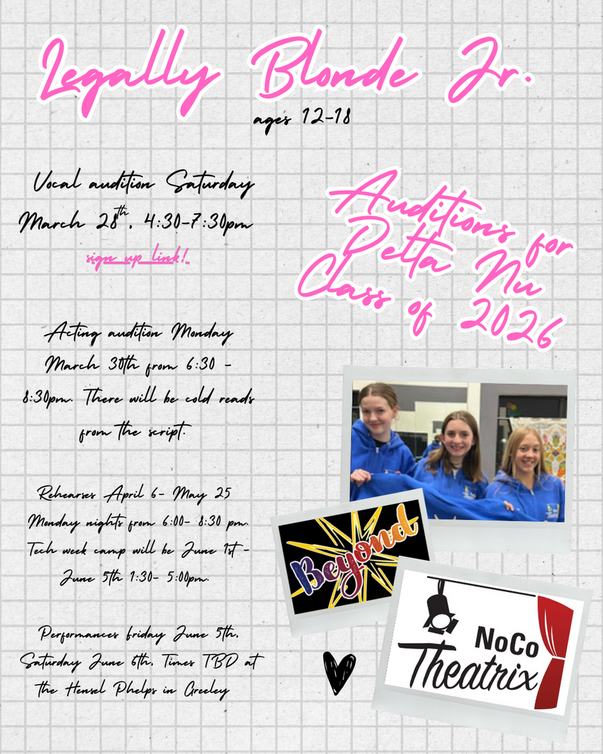 Legally Blonde Jr.
ages 12-18
Vocal audition Saturday
March 28th, 4:30-7:30pm
sign up link!
Auditions for
Delta Nu
Class of 2026
Acting audition Monday
March 30th from 6:30 -
8:30pm. There will be cold reads
from the script.
Rehearses April 6- May 25
Monday nights from 6:00- 8:30 pm.
Tech week camp will be June 1st -
June 5th 1:30- 5:00pm.
Performances friday June 5th,
Saturday June 6th, Times TBD at
the Hensel Phelps in Greeley
Beyond
NoCo
Theatrix